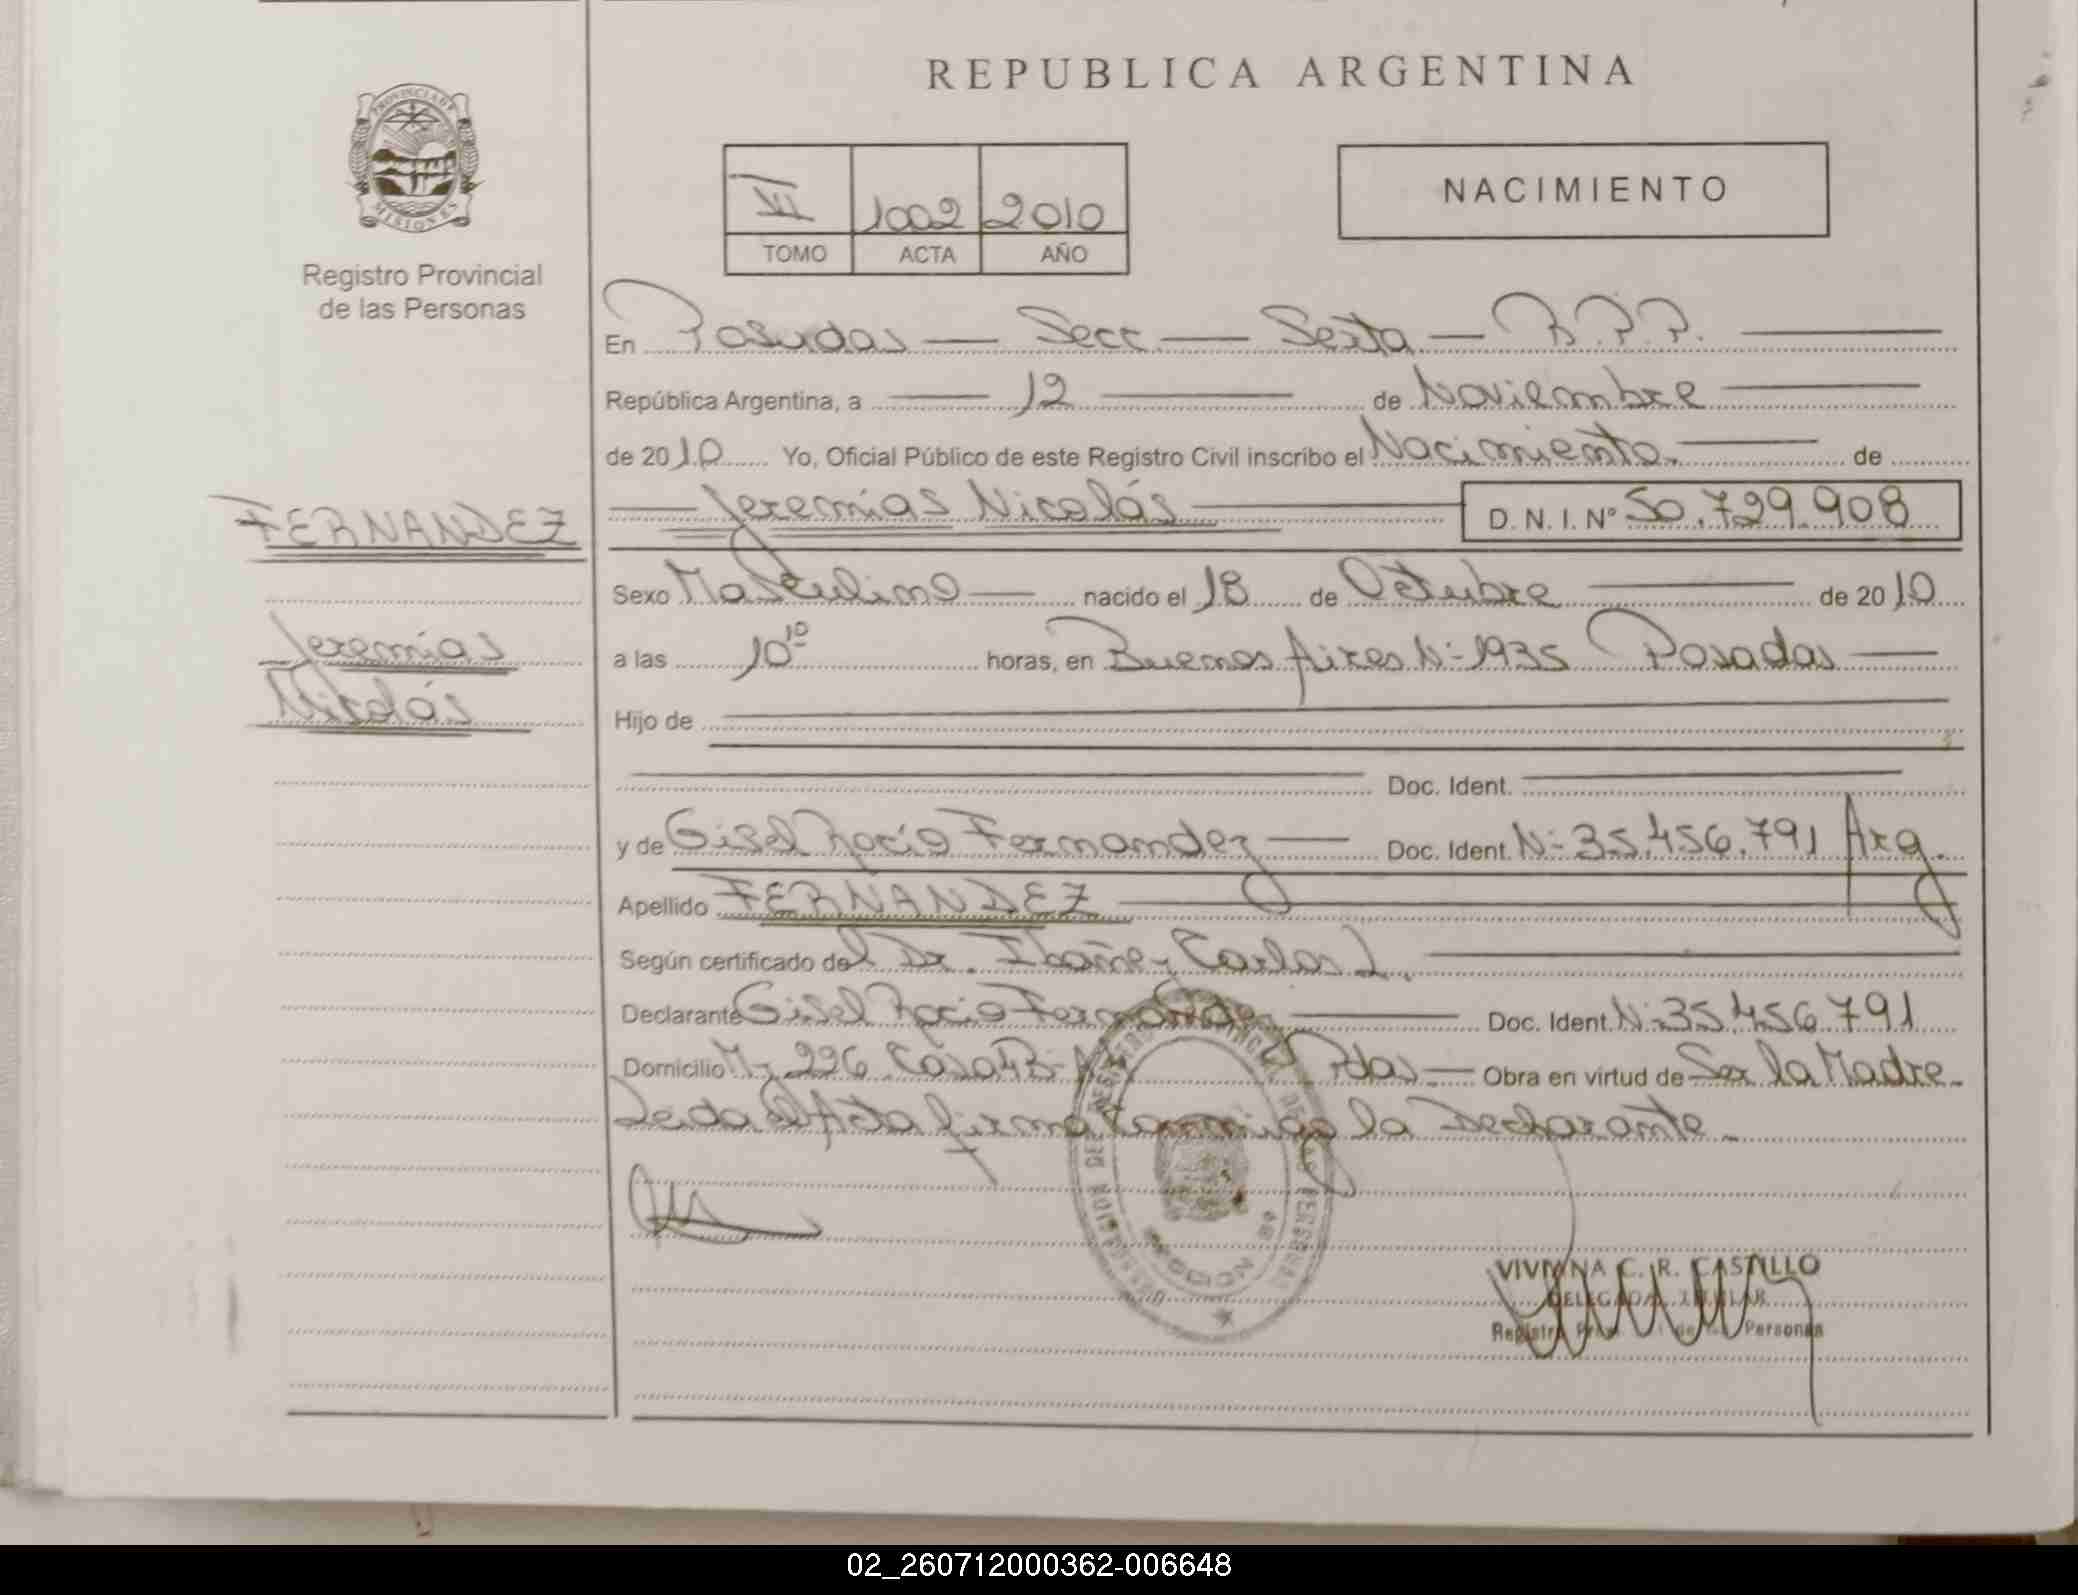 REPUBLICA ARGENTINA
PROVINCIA DE
MISIONES
Registro Provincial
de las Personas
VI 1002 2010
TOMO ACTA AÑO
NACIMIENTO
En Posadas — Secc — Sexta — R.P.P.
República Argentina, a — 12 — de Noviembre
de 2010 Yo, Oficial Público de este Registro Civil inscribo el Nacimiento de
FERNANDEZ
Jeremías Nicolás D. N. I. Nº 50.729.908
Sexo Masculino — nacido el 18 de Octubre — de 2010
Jeremías
Nicolás
a las 10 10 horas, en Buenos Aires Nº 1935 Posadas —
Hijo de
Doc. Ident.
y de Gisel Rocío Fernandez — Doc. Ident. Nº 35.456.791 Arg.
Apellido FERNANDEZ
Según certificado del Dr. Ibañez Carlos L.
Declarante Gisel Rocío Fernandez — Doc. Ident. Nº 35.456.791
Domicilio Mz 226 Casa Pdas — Obra en virtud de Ser la Madre.
Leida el Acta firma conmigo la Declarante
VIVIANA C. R. CASTILLO
DELEGADA TITULAR
Registro Prov. de las Personas
02_260712000362-006648